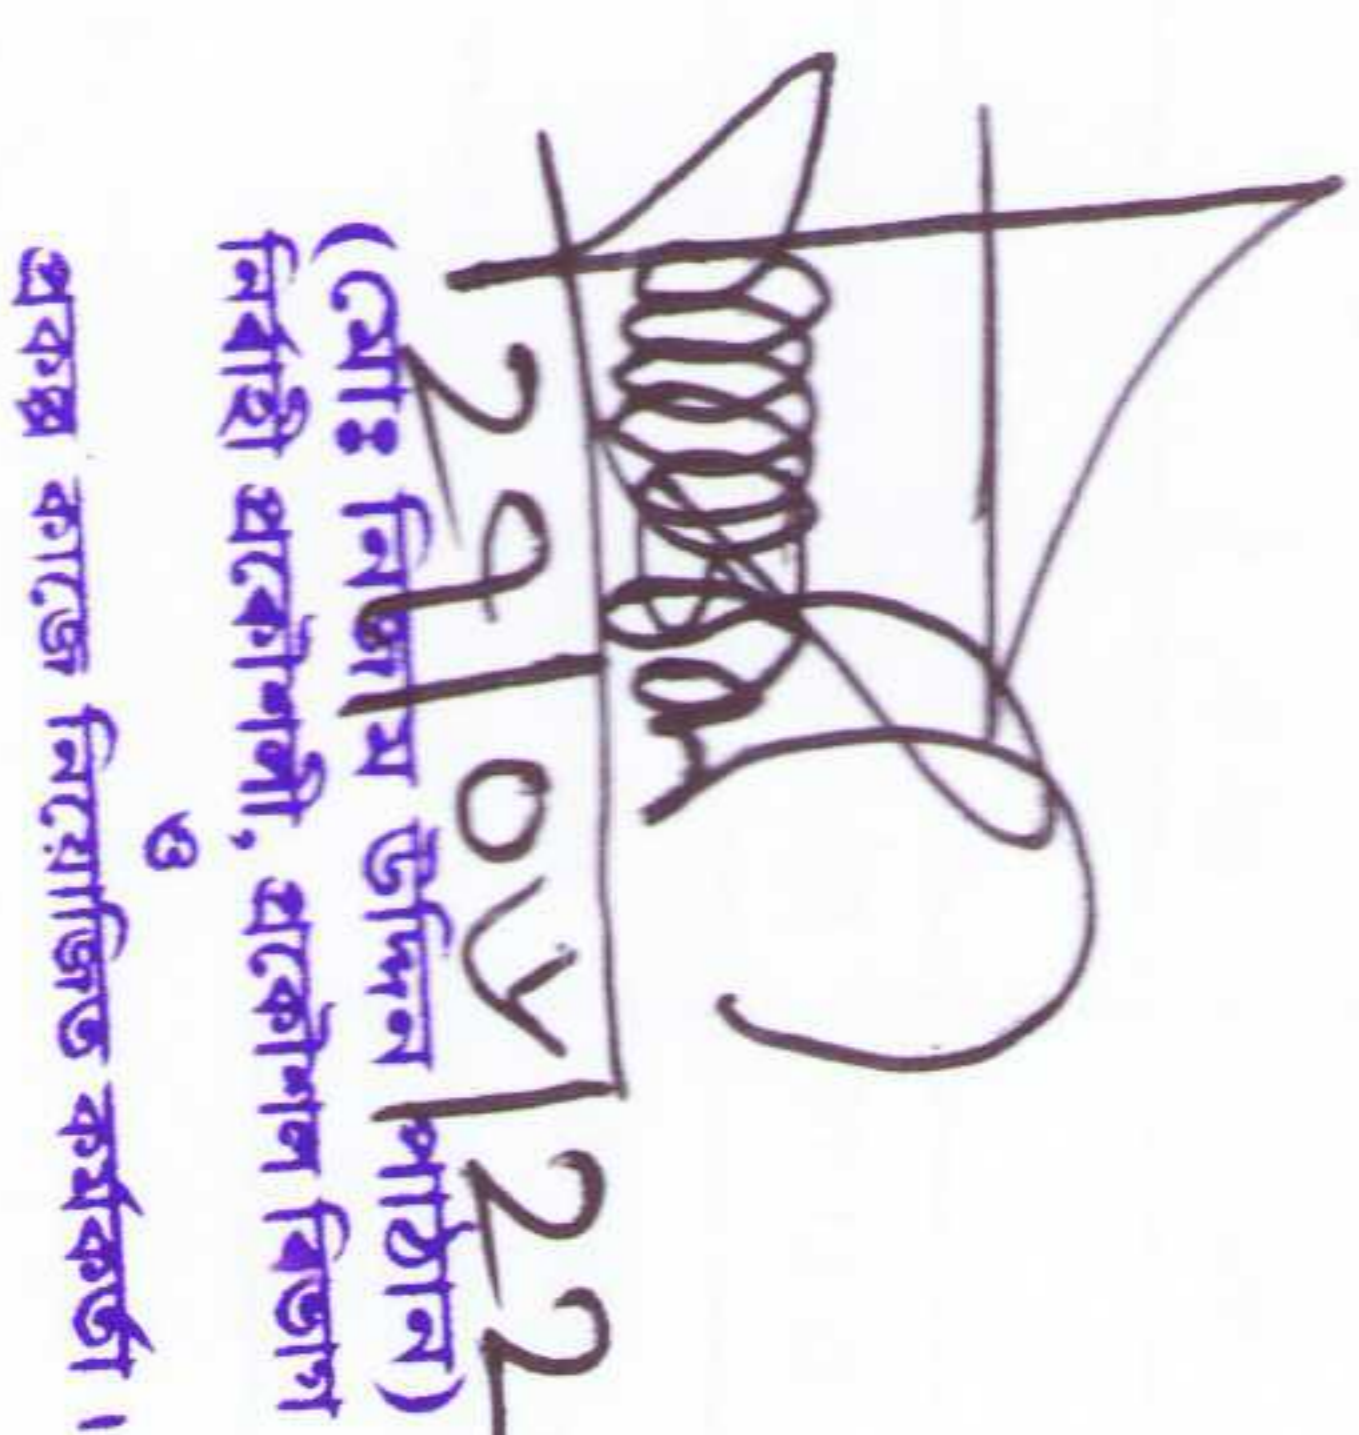 ২৭|০৮|২২
(মোঃ নিজাম উদ্দিন পাঠান)
নির্বাহী প্রকৌশলী, প্রকৌশল বিভাগ
ও
প্রকল্প কাজে নিয়োজিত কর্মকর্তা ।